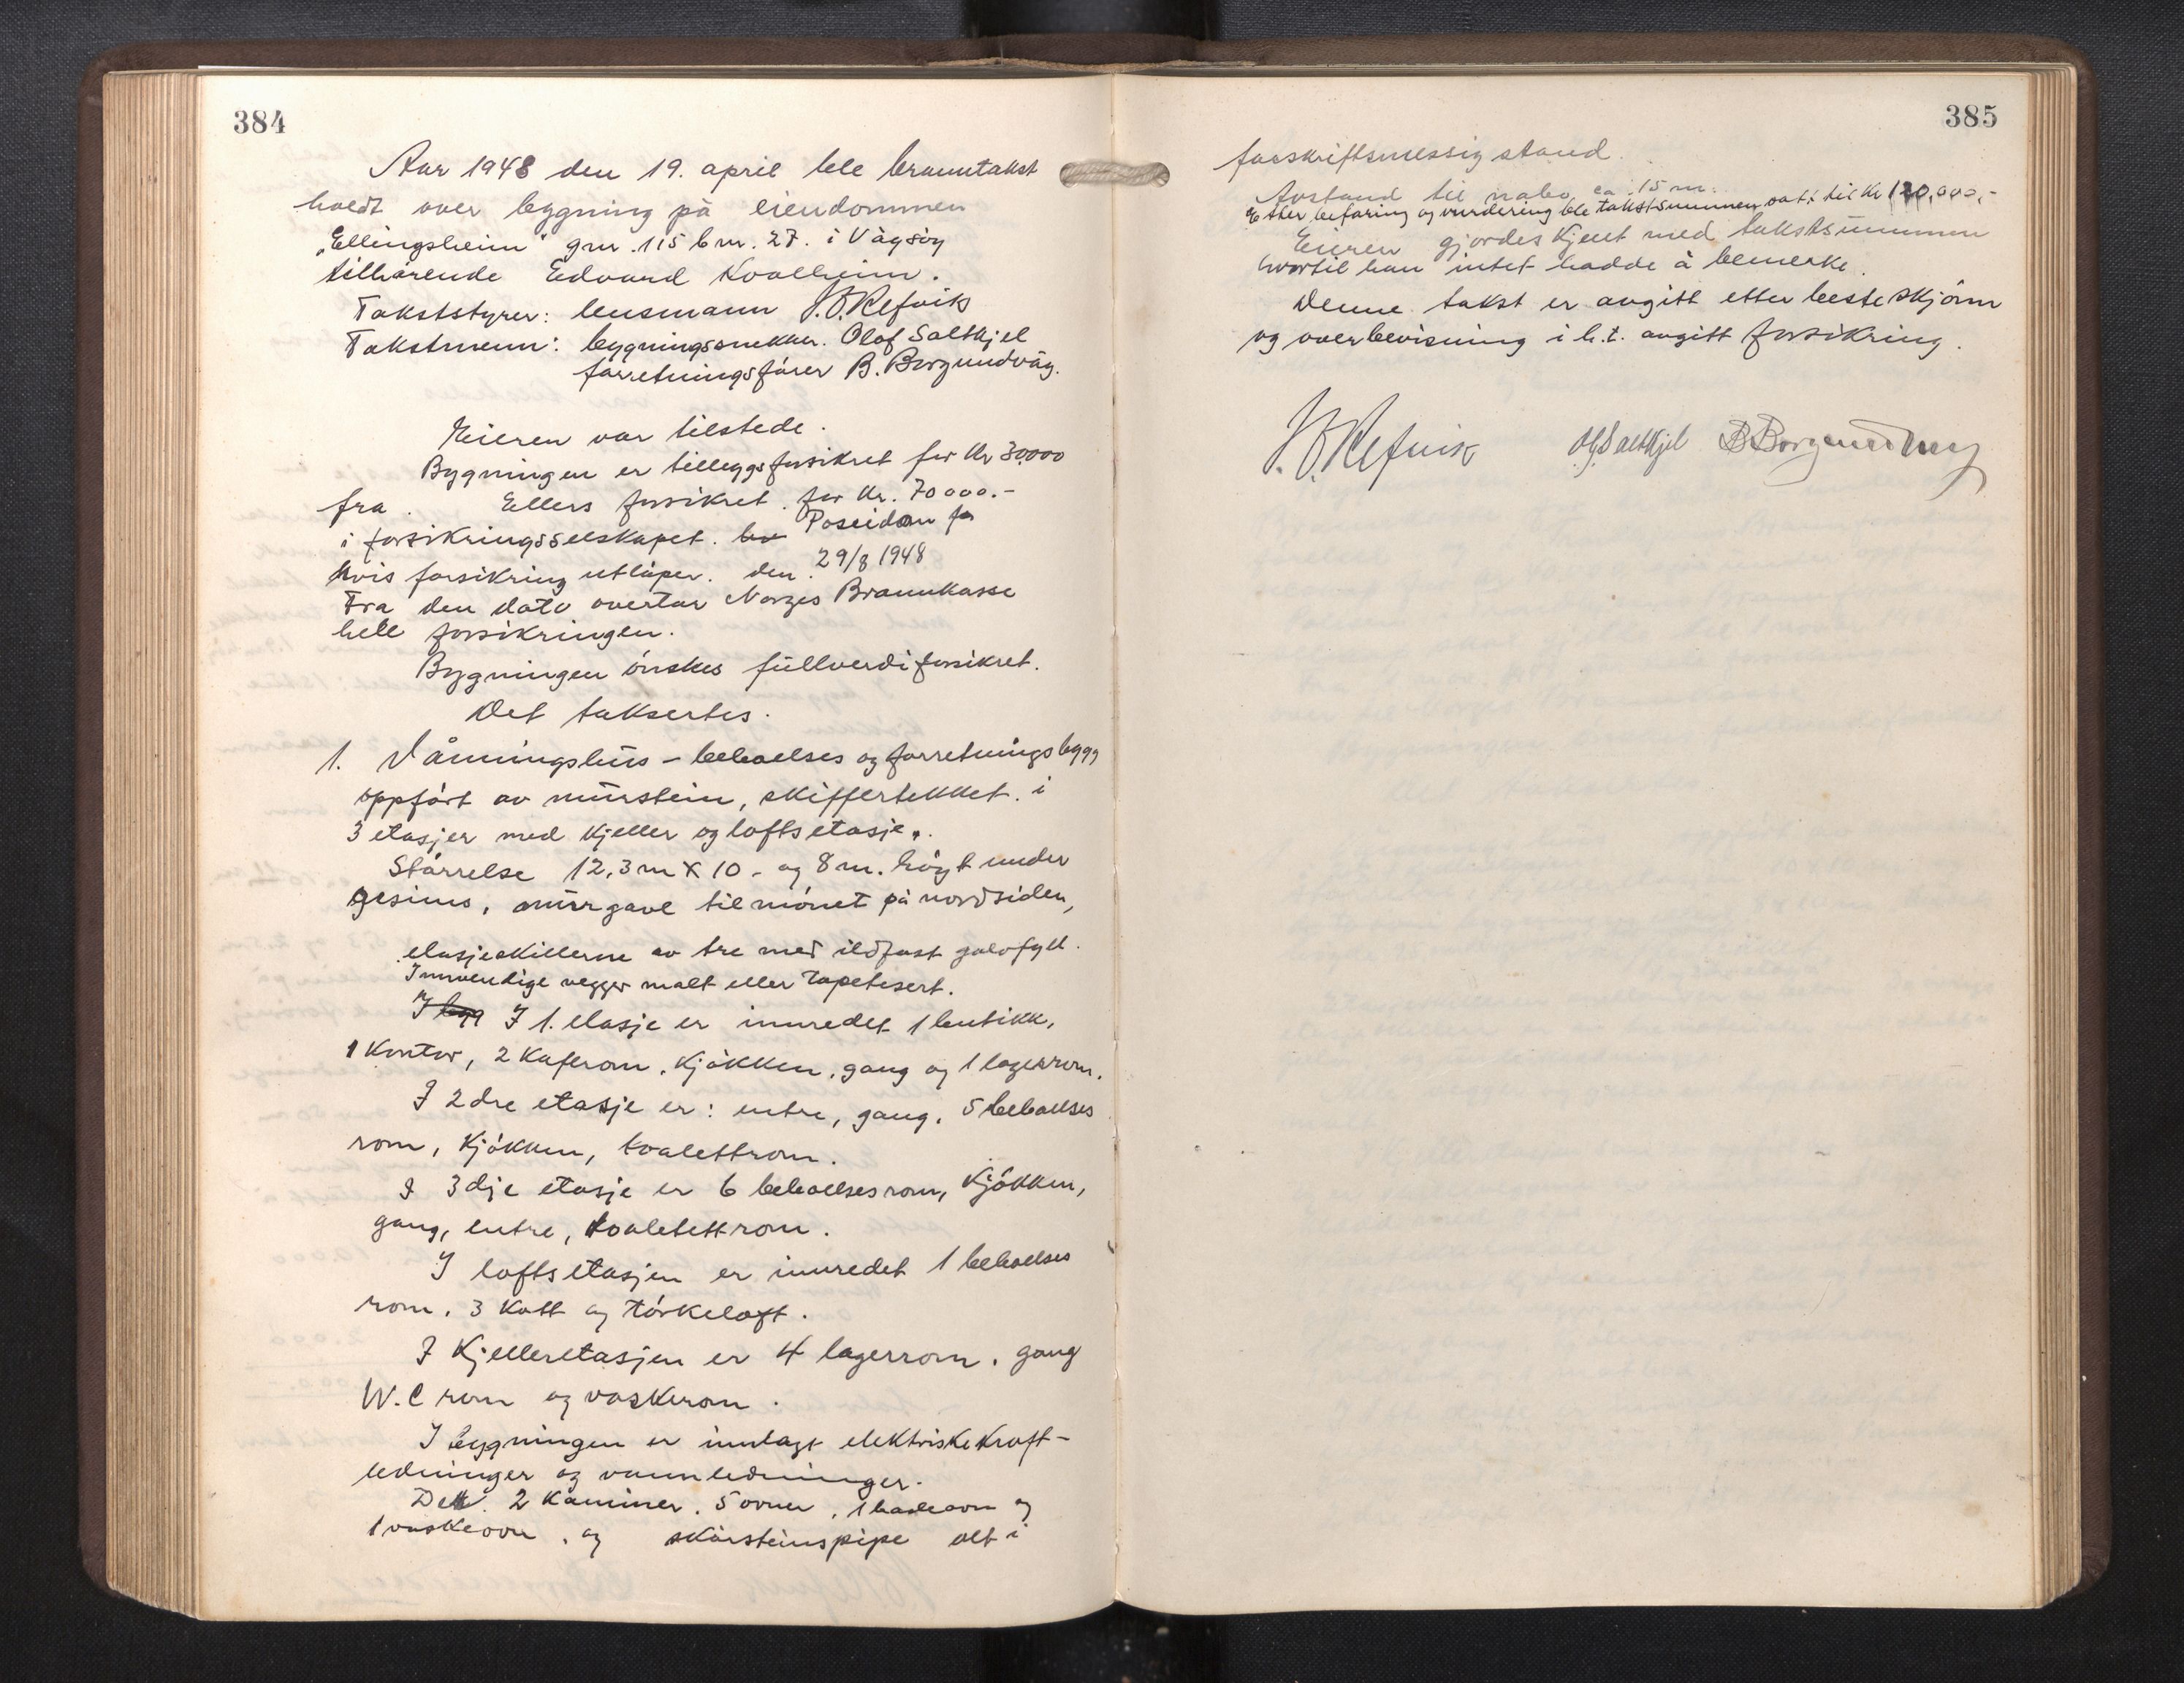 384
Aar 1948 den 19. april ble branntakst
holdt over bygning på eiendommen
„Ellingsheim" gnr. 115 bnr. 27. i Vågsöy
tilhörende Edvard Kvalheim.
Takststyrer: lensmann J.O. Refvik
Takstmenn: bygningssnekker. Olof Saltkjel
forretningsförer B. Borgundvåg.
Eieren var tilstede.
Bygningen er tilleggsforsikret for kr 30000
fra . Ellers forsikret for kr. 70000.-
i forsikringsselskapet. Poseidon for
hvis forsikring utlöper. den 29/8 1948
Fra den dato overtar Norges Brannkasse
hele forsikringen.
Bygningen önskes fullverdiforsikret.
Det taksertes.
1. Vånningshus - beboelses og forretningsbygg
oppfört av murstein, skiffertekket. i
3 etasjer med kjeller og loftsetasje.
Störrelse 12,3 m x 10 - og 8 m. höyt under
gesims, murgavl til mönet på nordsiden,
etasjeskillerne av tre med ildfast golvfyll.
Innvendige vegger malt eller tapetsert.
I bygg I 1. etasje er innredet 1 butikk,
1 Kontor, 2 kaferom, kjökken, gang og 1 lagerrom.
I 2dre etasje er: entre, gang, 5 beboelses
rom, kjökken, toalettrom.
I 3dje etasje er 6 beboelsesrom, kjökken,
gang, entre, toaletettrom.
I loftsetasjen er innredet 1 beboelses
rom, 3 kott og törkeloft.
I Kjelleretasjen er 4 lagerrom, gang
W.C rom og vaskerom.
I bygningen er innlagt elektriske kraft-
ledninger og vannledninger.
Dett. 2 Kaminer, 5 ovner, 1 badeovn og
1 vaskeovn, og skorsteinspipe alt i
385
forskriftsmessig stand.
Avstand til nabo ca. 15 m.
Etter befaring og vurdering ble takstsummen satt til kr 120,000,-
Eieren gjordes kjent med takstsummen
hvortil han intet hadde å bemerke.
Denne takst er avgitt etter beste skjönn
og overbevisning i h.t. avgitt forsikring.
J.O. Refvik O. Saltkjel B. Borgundvåg